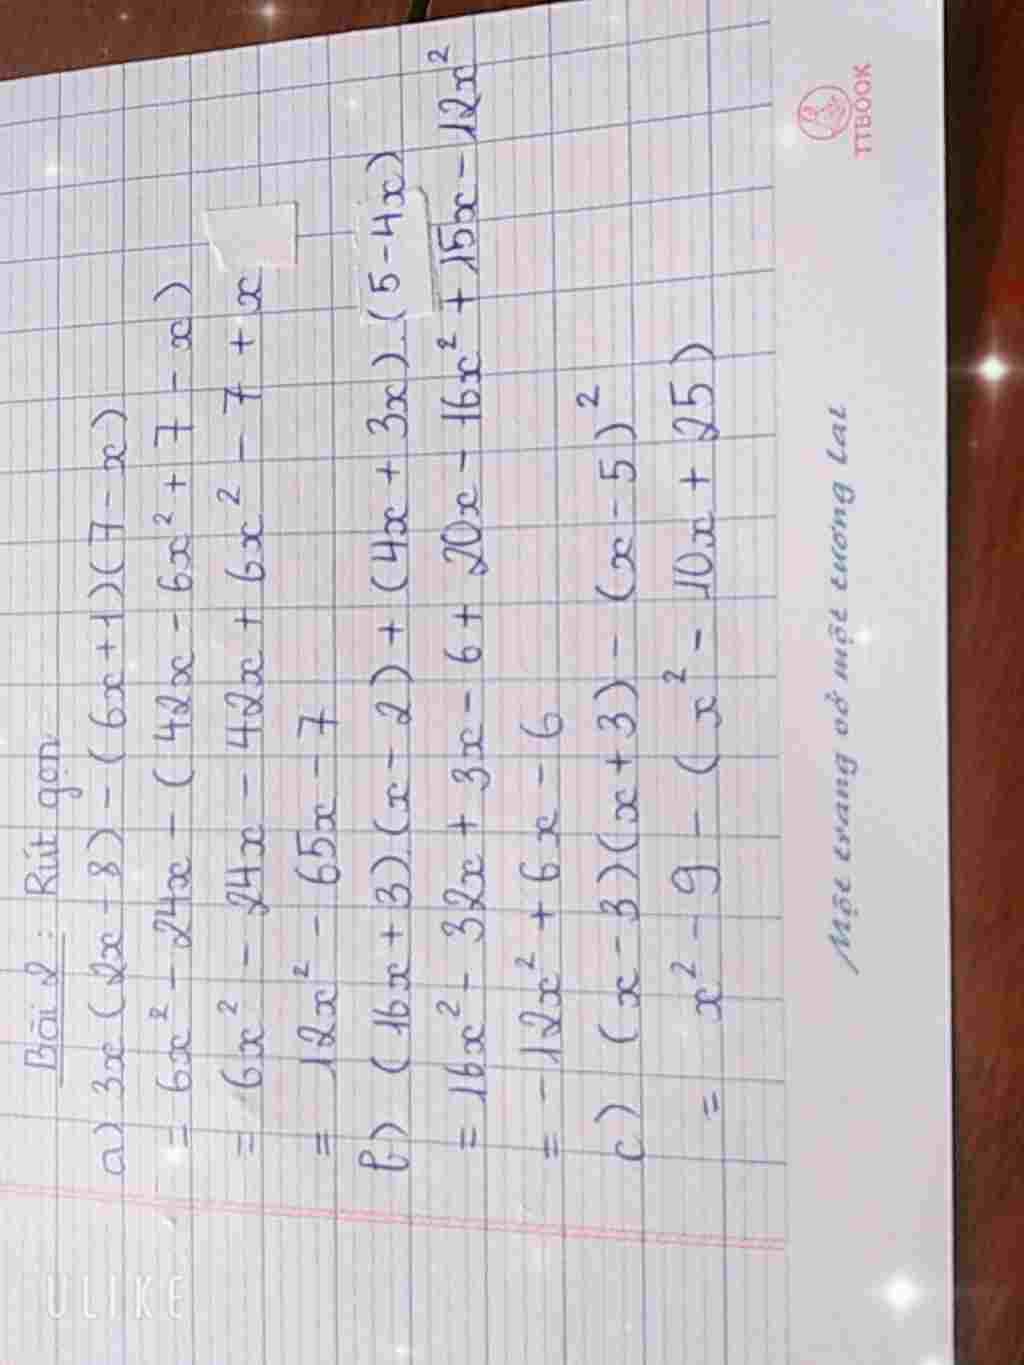 Bài 2: Rút gọn
a) 3x(2x-8)-(6x+1)(7-x)
= 6x² - 24x - (42x - 6x² + 7 - x)
= 6x² - 24x - 42x + 6x² - 7 + x
= 12x² - 65x - 7
b) (16x+3).(x-2)+(4x+3x).(5-4x)
= 16x² - 32x + 3x - 6 + 20x - 16x² + 15x - 12x²
= -12x² + 6x - 6
c) (x-3)(x+3)-(x-5)²
= x² - 9 - (x² - 10x + 25)
Một trang vở một tương lai
TTBOOK
ULIKE